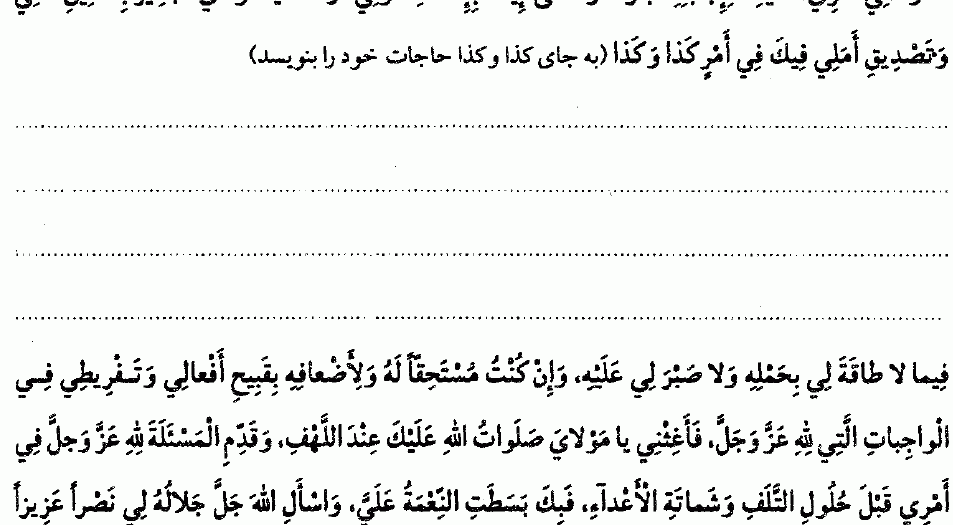 وَتَصْدِيقِ أَمَلِي فِيكَ فِي أَمْرِ كَذَا وَكَذَا (به جای کذا و کذا حاجات خود را بنویسد)
فِيما لا طاقَةَ لِي بِحَمْلِهِ وَلا صَبْرَ لِي عَلَيْهِ، وَإِنْ كُنْتُ مُسْتَحِقّاً لَهُ وَلِأَضْعافِهِ بِقَبِيحِ أَفْعالِي وَتَفْرِيطِي فِي
الْواجِباتِ الَّتِي لِلهِ عَزَّ وَجَلَّ، فَأَغِثْنِي يا مَوْلايَ صَلَواتُ اللهِ عَلَيْكَ عِنْدَ اللَّهْفِ، وَقَدِّمِ الْمَسْئَلَةَ لِلهِ عَزَّ وَجلَّ فِي
أَمْرِي قَبْلَ حُلُولِ التَّلَفِ وَشَماتَةِ الْأَعْدآءِ، فَبِكَ بَسَطَتِ النِّعْمَةُ عَلَيَّ، وَاسْأَلِ اللهَ جَلَّ جَلالُهُ لِي نَصْراً عَزِيزاً